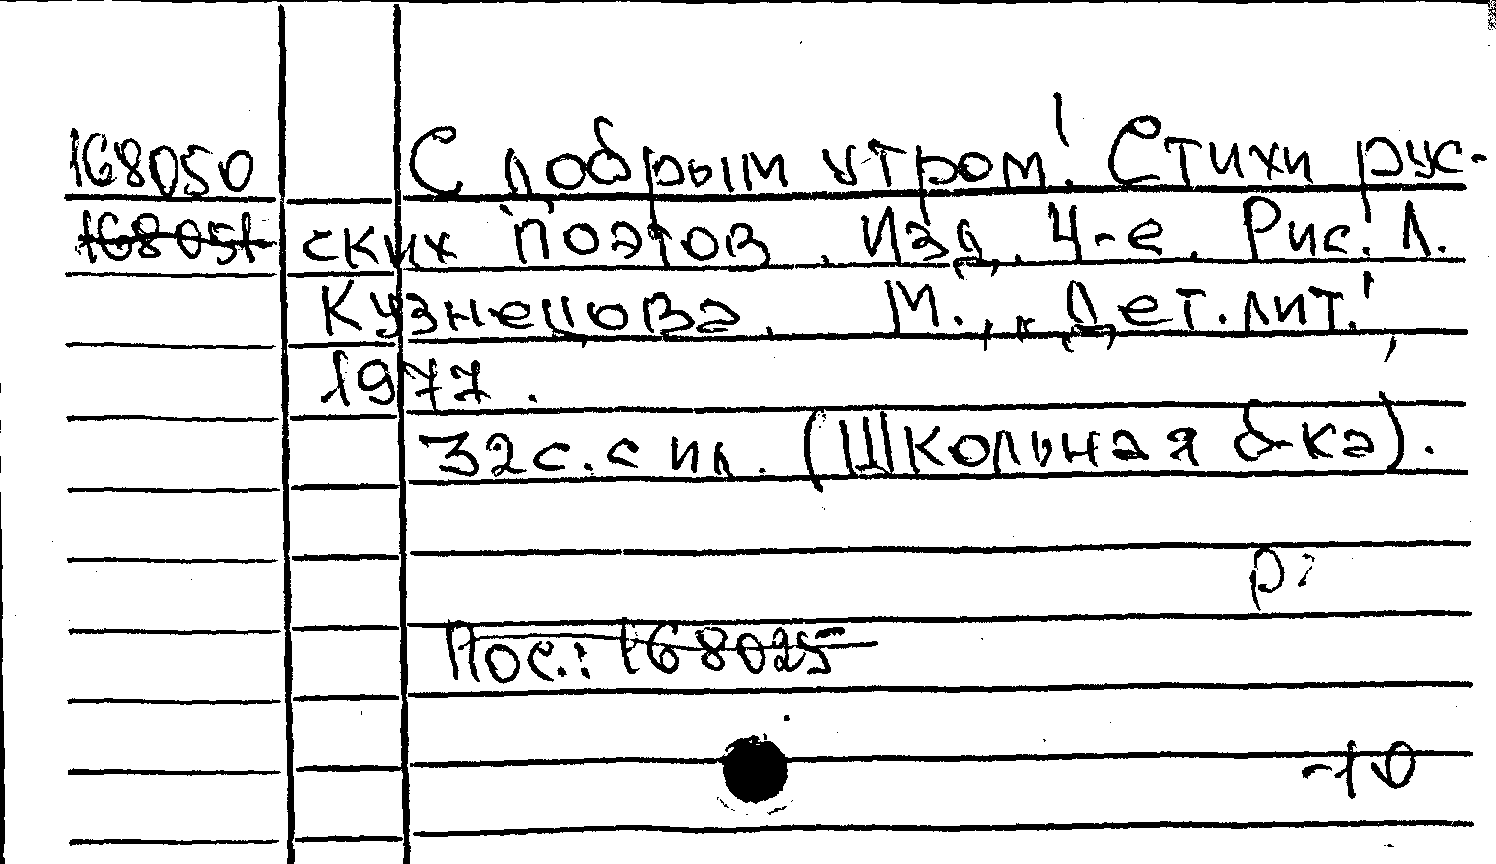 168050 С добрым утром! Стихи рус-
168051 ских поэтов. Изд. 4-е. Рис. Л.
Кузнецова. М., "Дет. лит.",
1977.
32 с. с ил. (Школьная б-ка).
р:
Пос.: 168025
-10